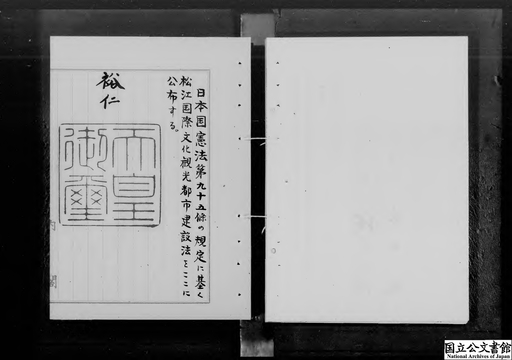 日本国憲法第九十五條の規定に基く
松江国際文化観光都市建設法をここに
公布する。
裕仁
天皇
御璽
内閣
国立公文書館
National Archives of Japan